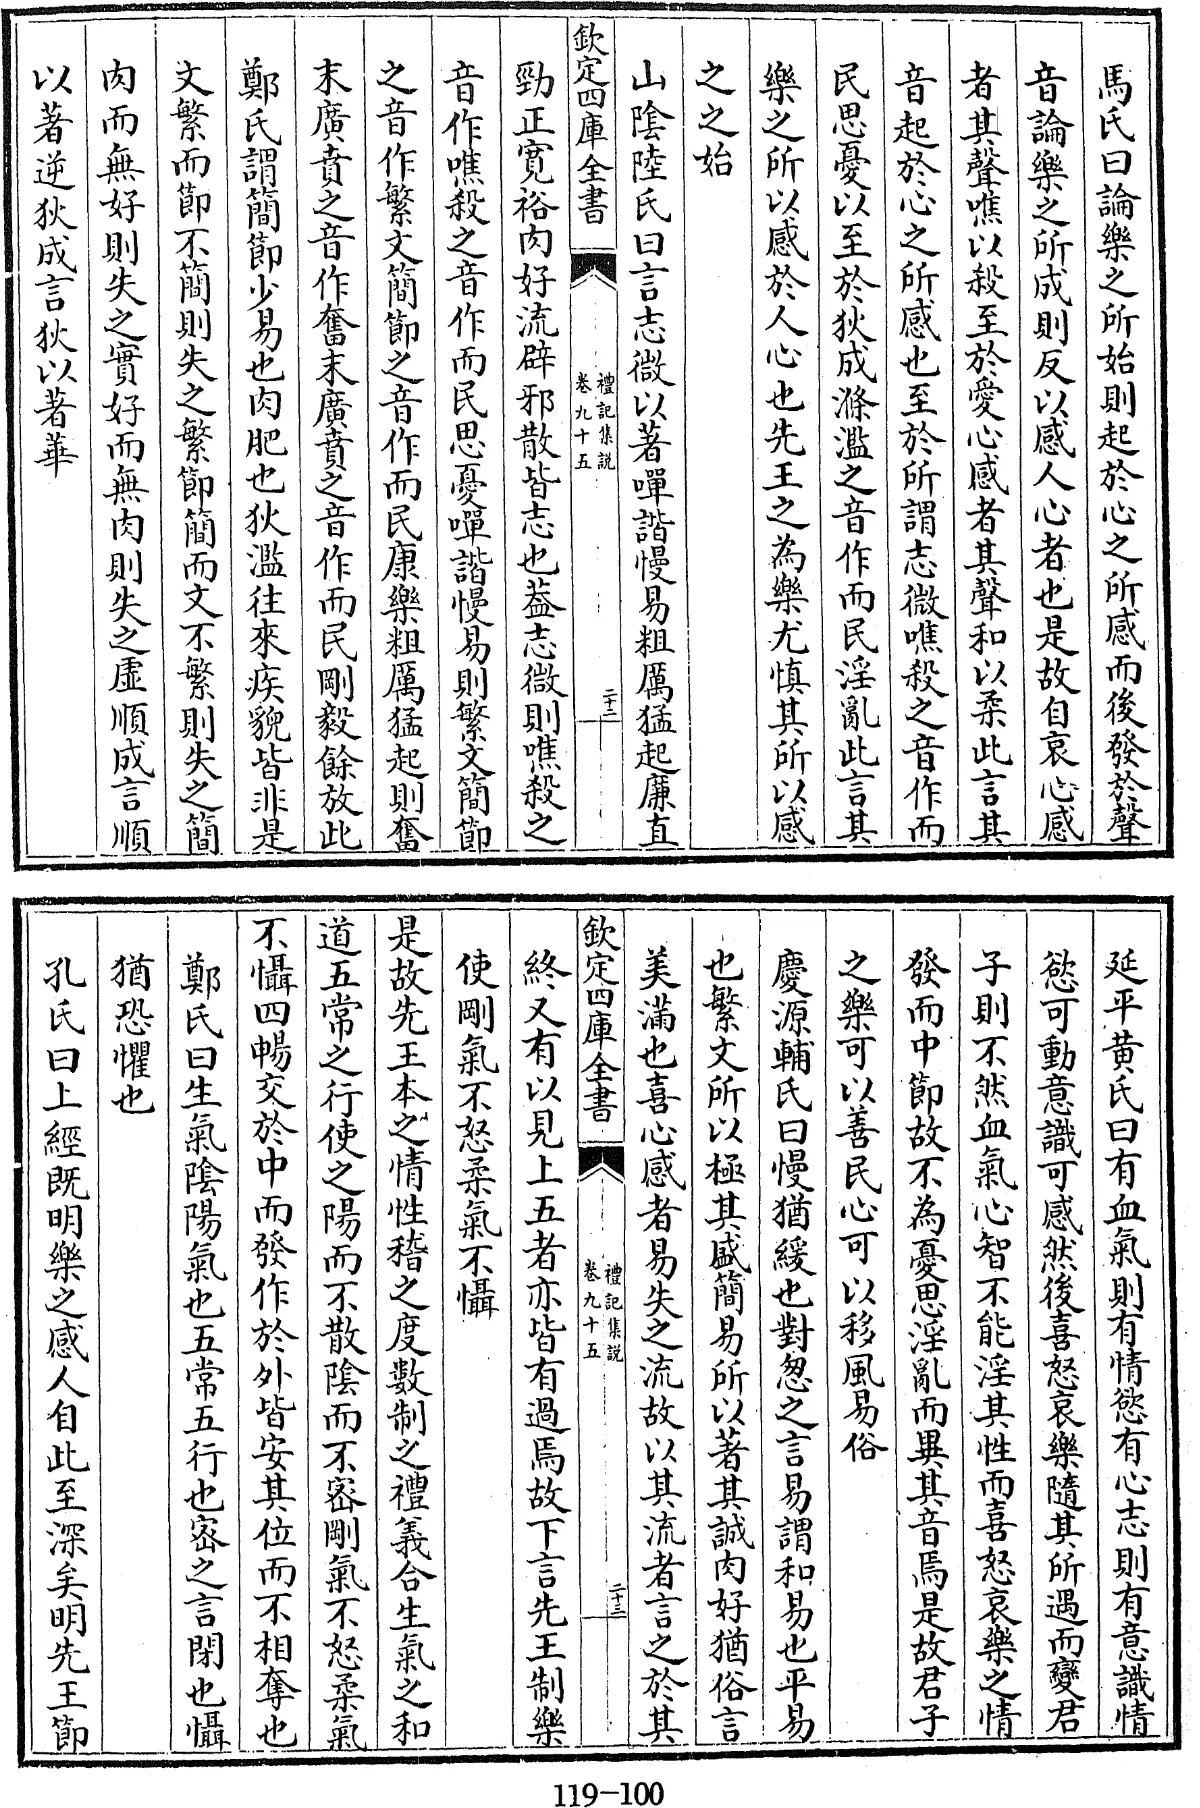 馬氏曰論樂之所始則起於心之所感而後發於聲
音論樂之所成則反以感人心者也是故自哀心感
者其聲噍以殺至於愛心感者其聲和以柔此言其
音起於心之所感也至於所謂志微噍殺之音作而
民思憂以至於狄成滌濫之音作而民淫亂此言其
樂之所以感於人心也先王之為樂尤慎其所以感
之之始
山陰陸氏曰言志微以著嘽諧慢易粗厲猛起廉直
欽定四庫全書
禮記集説
卷九十五
二十二
勁正寛裕肉好流辟邪散皆志也葢志微則噍殺之
音作噍殺之音作而民思憂嘽諧慢易則繁文簡節
之音作繁文簡節之音作而民康樂粗厲猛起則奮
末廣賁之音作奮末廣賁之音作而民剛毅餘放此
鄭氏謂簡節少易也肉肥也狄濫往來疾貌皆非是
文繁而節不簡則失之繁節簡而文不繁則失之簡
肉而無好則失之實好而無肉則失之虛順成言順
以著逆狄成言狄以著華
延平黄氏曰有血氣則有情慾有心志則有意識情
慾可動意識可感然後喜怒哀樂隨其所遇而變君
子則不然血氣心智不能淫其性而喜怒哀樂之情
發而中節故不為憂思淫亂而異其音焉是故君子
之樂可以善民心可以移風易俗
慶源輔氏曰慢猶緩也對怱之言易謂和易也平易
也繁文所以極其盛簡易所以著其誠肉好猶俗言
美滿也喜心感者易失之流故以其流者言之於其
欽定四庫全書
禮記集説
卷九十五
二十三
終又有以見上五者亦皆有過焉故下言先王制樂
使剛氣不怒柔氣不懾
是故先王本之情性稽之度數制之禮義合生氣之和
道五常之行使之陽而不散陰而不密剛氣不怒柔氣
不懾四暢交於中而發作於外皆安其位而不相奪也
鄭氏曰生氣陰陽氣也五常五行也密之言閉也懾
猶恐懼也
孔氏曰上經既明樂之感人自此至深矣明先王節
119-100